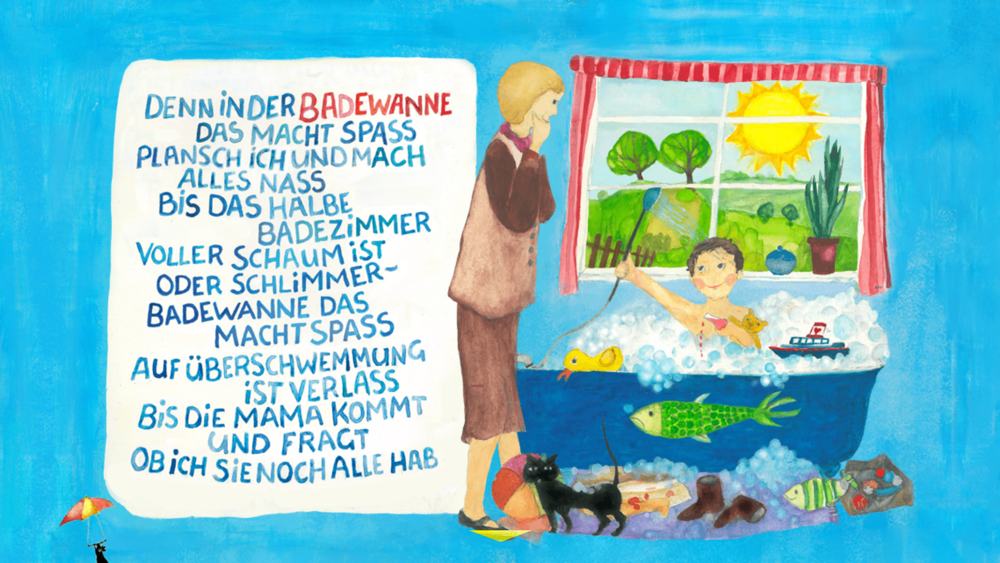 DENN iN DER BADEWANNE
DAS MACHT SPASS
PLANSCH iCH UND MACH
ALLES NASS
BiS DAS HALBE
BADEZiMMER
VOLLER SCHAUM iST
ODER SCHLiMMER-
BADEWANNE DAS
MACHT SPASS
AUF ÜBERSCHWEMMUNG
iST VERLASS
BiS DiE MAMA KOMMT
UND FRAGT
OB iCH SiE NOCH ALLE HAB